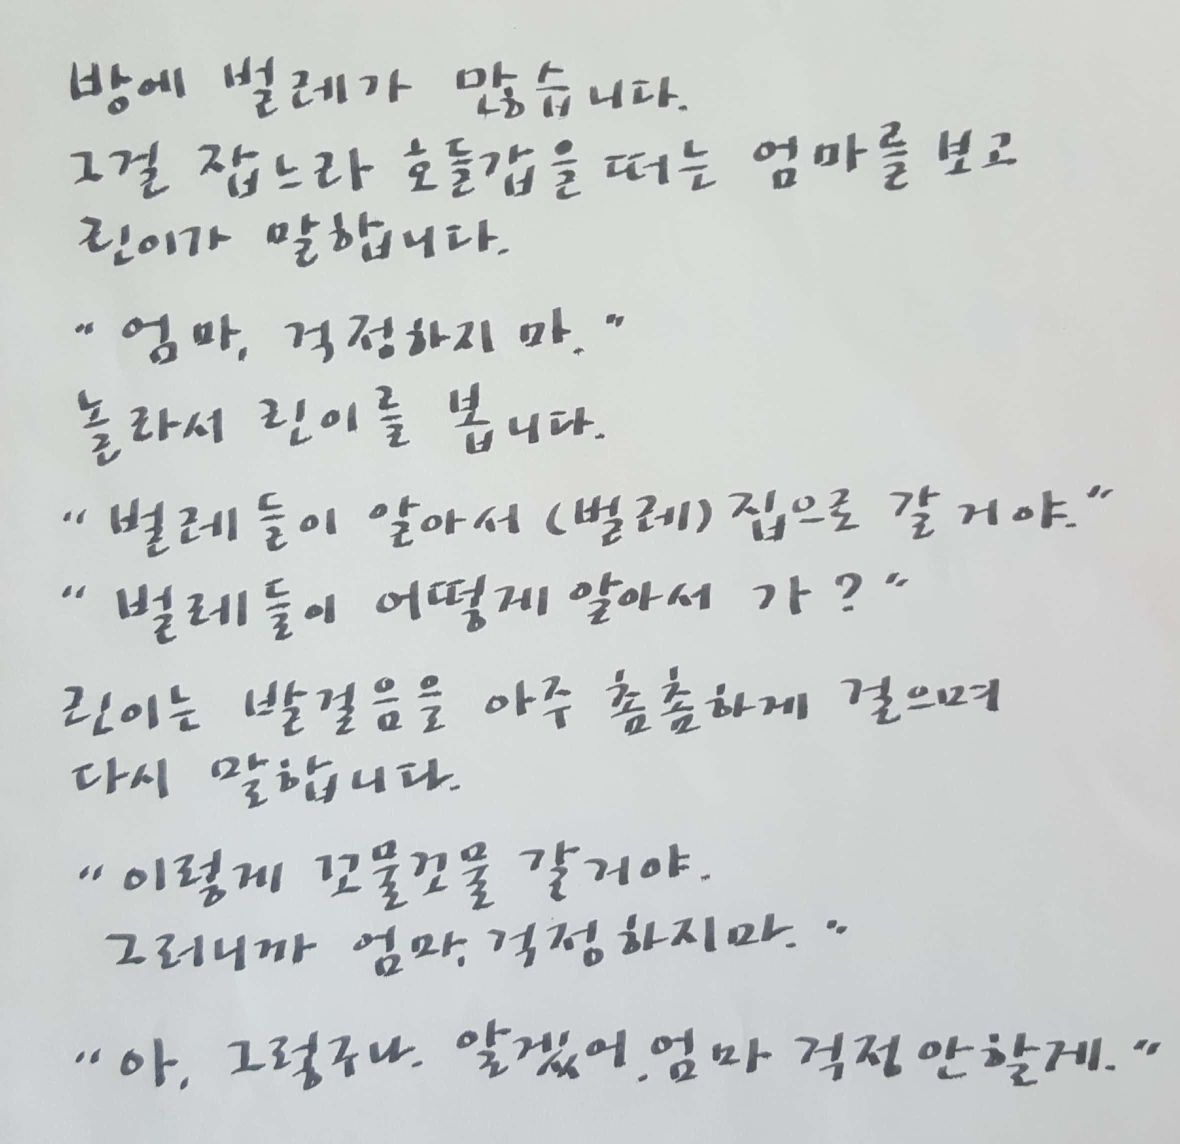 방에 벌레가 많습니다.
그걸 잡느라 호들갑을 떠는 엄마를 보고
린이가 말합니다.
"엄마, 걱정하지 마."
놀라서 린이를 봅니다.
"벌레들이 알아서 (벌레) 집으로 갈 거야."
"벌레들이 어떻게 알아서 가?"
린이는 발걸음을 아주 촘촘하게 걸으며
다시 말합니다.
"이렇게 꼬물꼬물 갈거야.
그러니까 엄마, 걱정하지마."
"아, 그렇구나. 알겠어. 엄마 걱정 안할게."